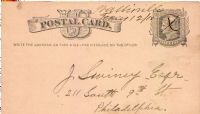 POSTAL CARD.
WRITE THE ADDRESS ON THIS SIDE - THE MESSAGE ON THE OTHER
J. Swiney Esqr
211 South 9th St
Philadelphia.